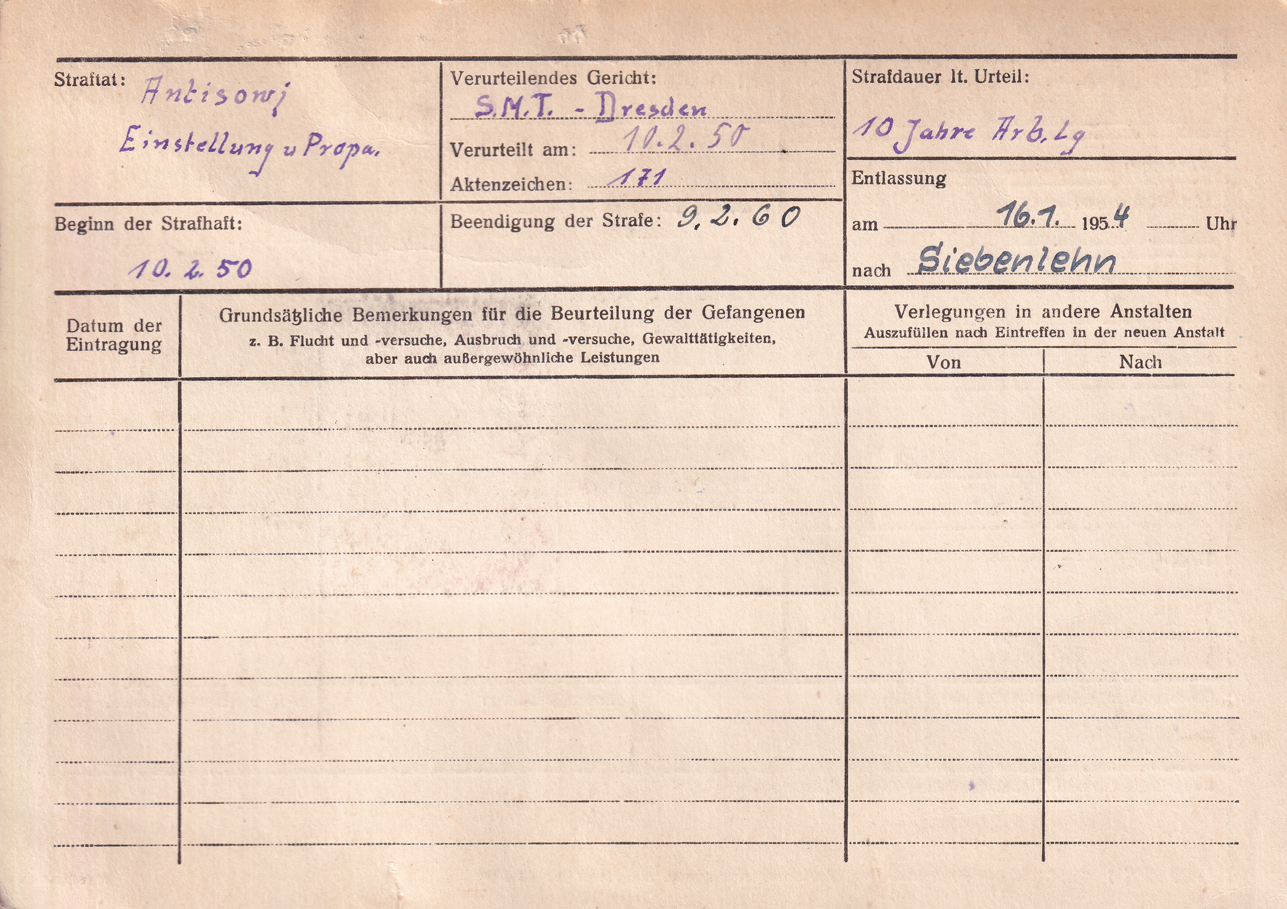 Straftat:
Antisowj
Einstellung u Propa.
Verurteilendes Gericht:
S.M.T. - Dresden
Verurteilt am: 10.2.50
Aktenzeichen: 171
Strafdauer lt. Urteil:
10 Jahre Arb.Lg
Entlassung
am 16.1. 1954 Uhr
nach Siebenlehn
Beginn der Strafhaft:
10. 2. 50
Beendigung der Strafe: 9.2.60
Datum der
Eintragung
Grundsätzliche Bemerkungen für die Beurteilung der Gefangenen
z. B. Flucht und -versuche, Ausbruch und -versuche, Gewalttätigkeiten,
aber auch außergewöhnliche Leistungen
Verlegungen in andere Anstalten
Auszufüllen nach Eintreffen in der neuen Anstalt
Von
Nach